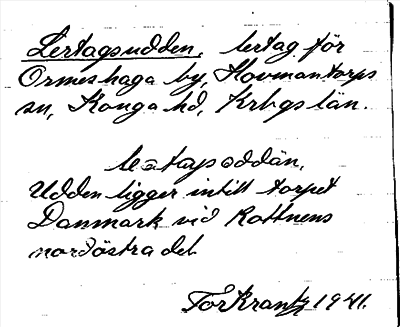 Lertagsudden, lertag för
Ormeshaga by, Hovmantorps
sn, Konga hd, Krbgs län.
Udden ligger intill torpet
Danmark vid Rottnens
nordöstra del
Tor Krantz 1941.